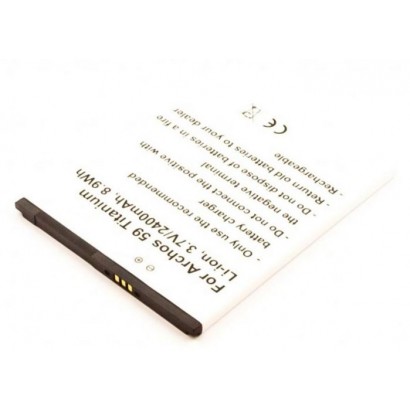 For Archos 59 Titanium
Li-Ion, 3.7V/2400mAh, 8.9Wh
- Only use the recommended
battery charger
- Do not connect the positive with
the negative terminal
- Do not dispose of batteries in a fire
- Return old batteries to your dealer
- Rechargeable
CE